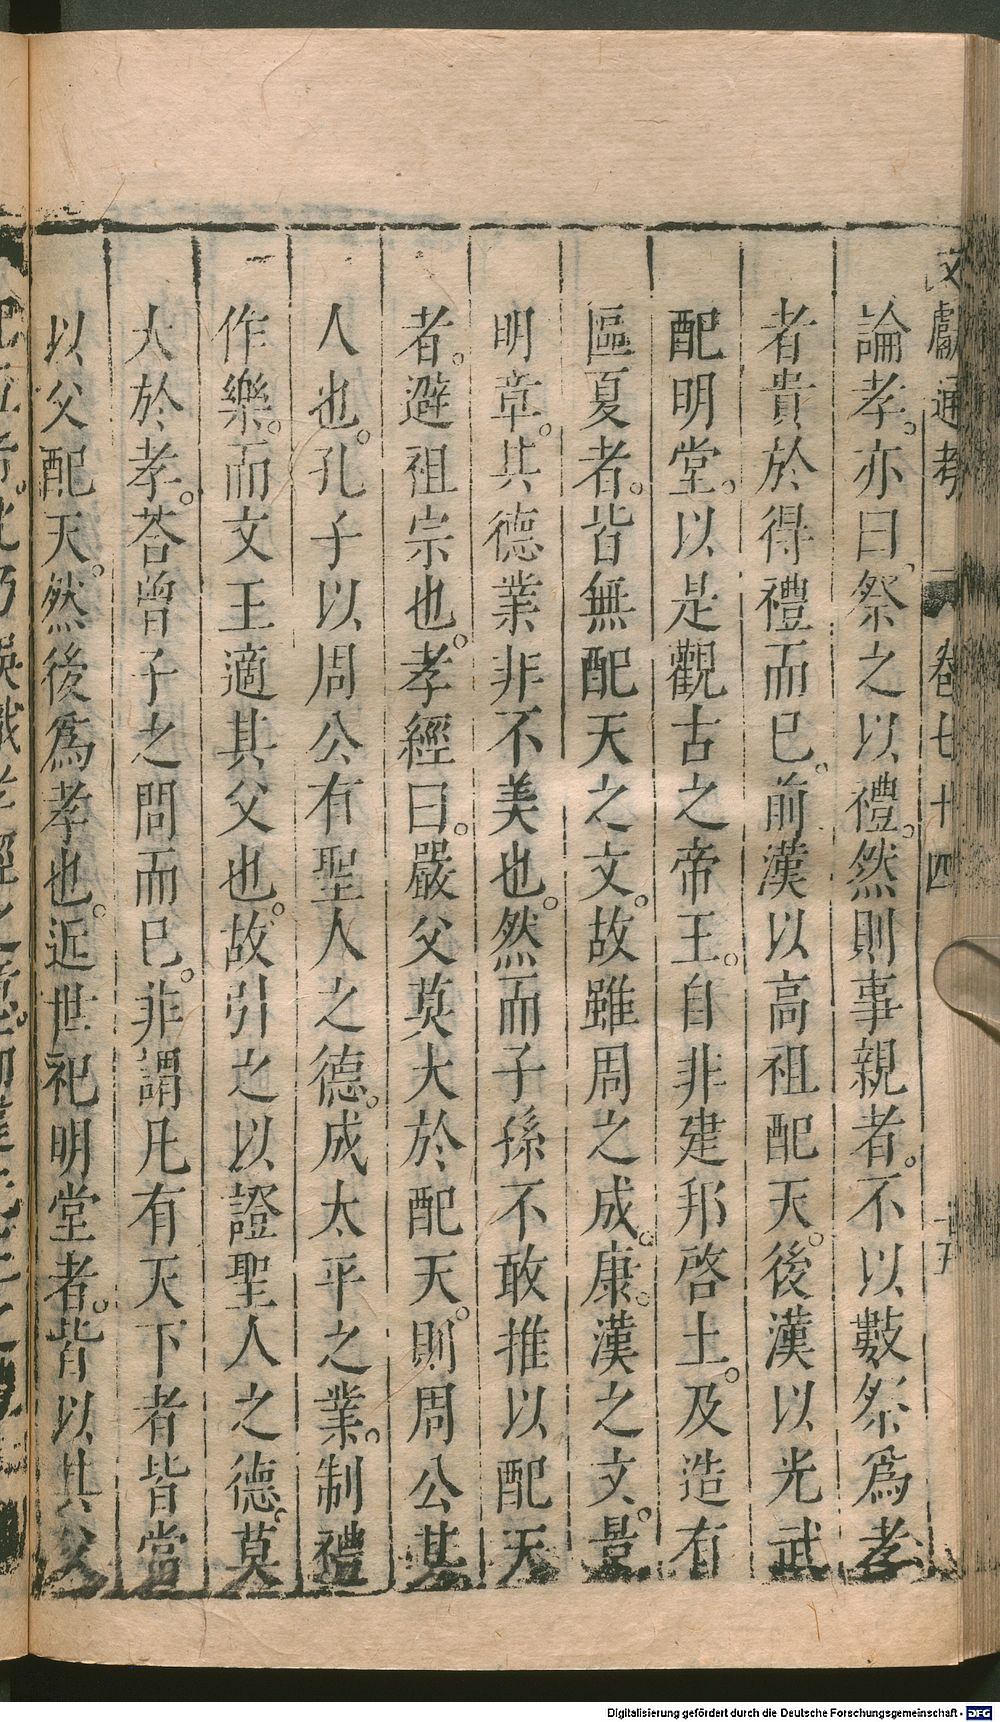 文獻通考 卷七十四
論孝。亦曰、祭之以禮。然則事親者。不以數祭爲孝
者貴於得禮而已。前漢以高祖配天。後漢以光武
配明堂。以是觀古之帝王。自非建邦啓土。及造有
區夏者。皆無配天之文。故雖周之成。康。漢之文。景。
明章。其德業非不美也。然而子孫不敢推以配天
者。避祖宗也。孝經曰。嚴父莫大於配天。則周公其
人也。孔子以周公有聖人之德。成太平之業。制禮
作樂。而文王適其父也。故引之以證聖人之德。莫
大於孝。荅曾子之問而已。非謂凡有天下者皆當
以父配天。然後爲孝也。近世祀明堂者。皆以其父
Digitalisierung gefördert durch die Deutsche Forschungsgemeinschaft - DFG